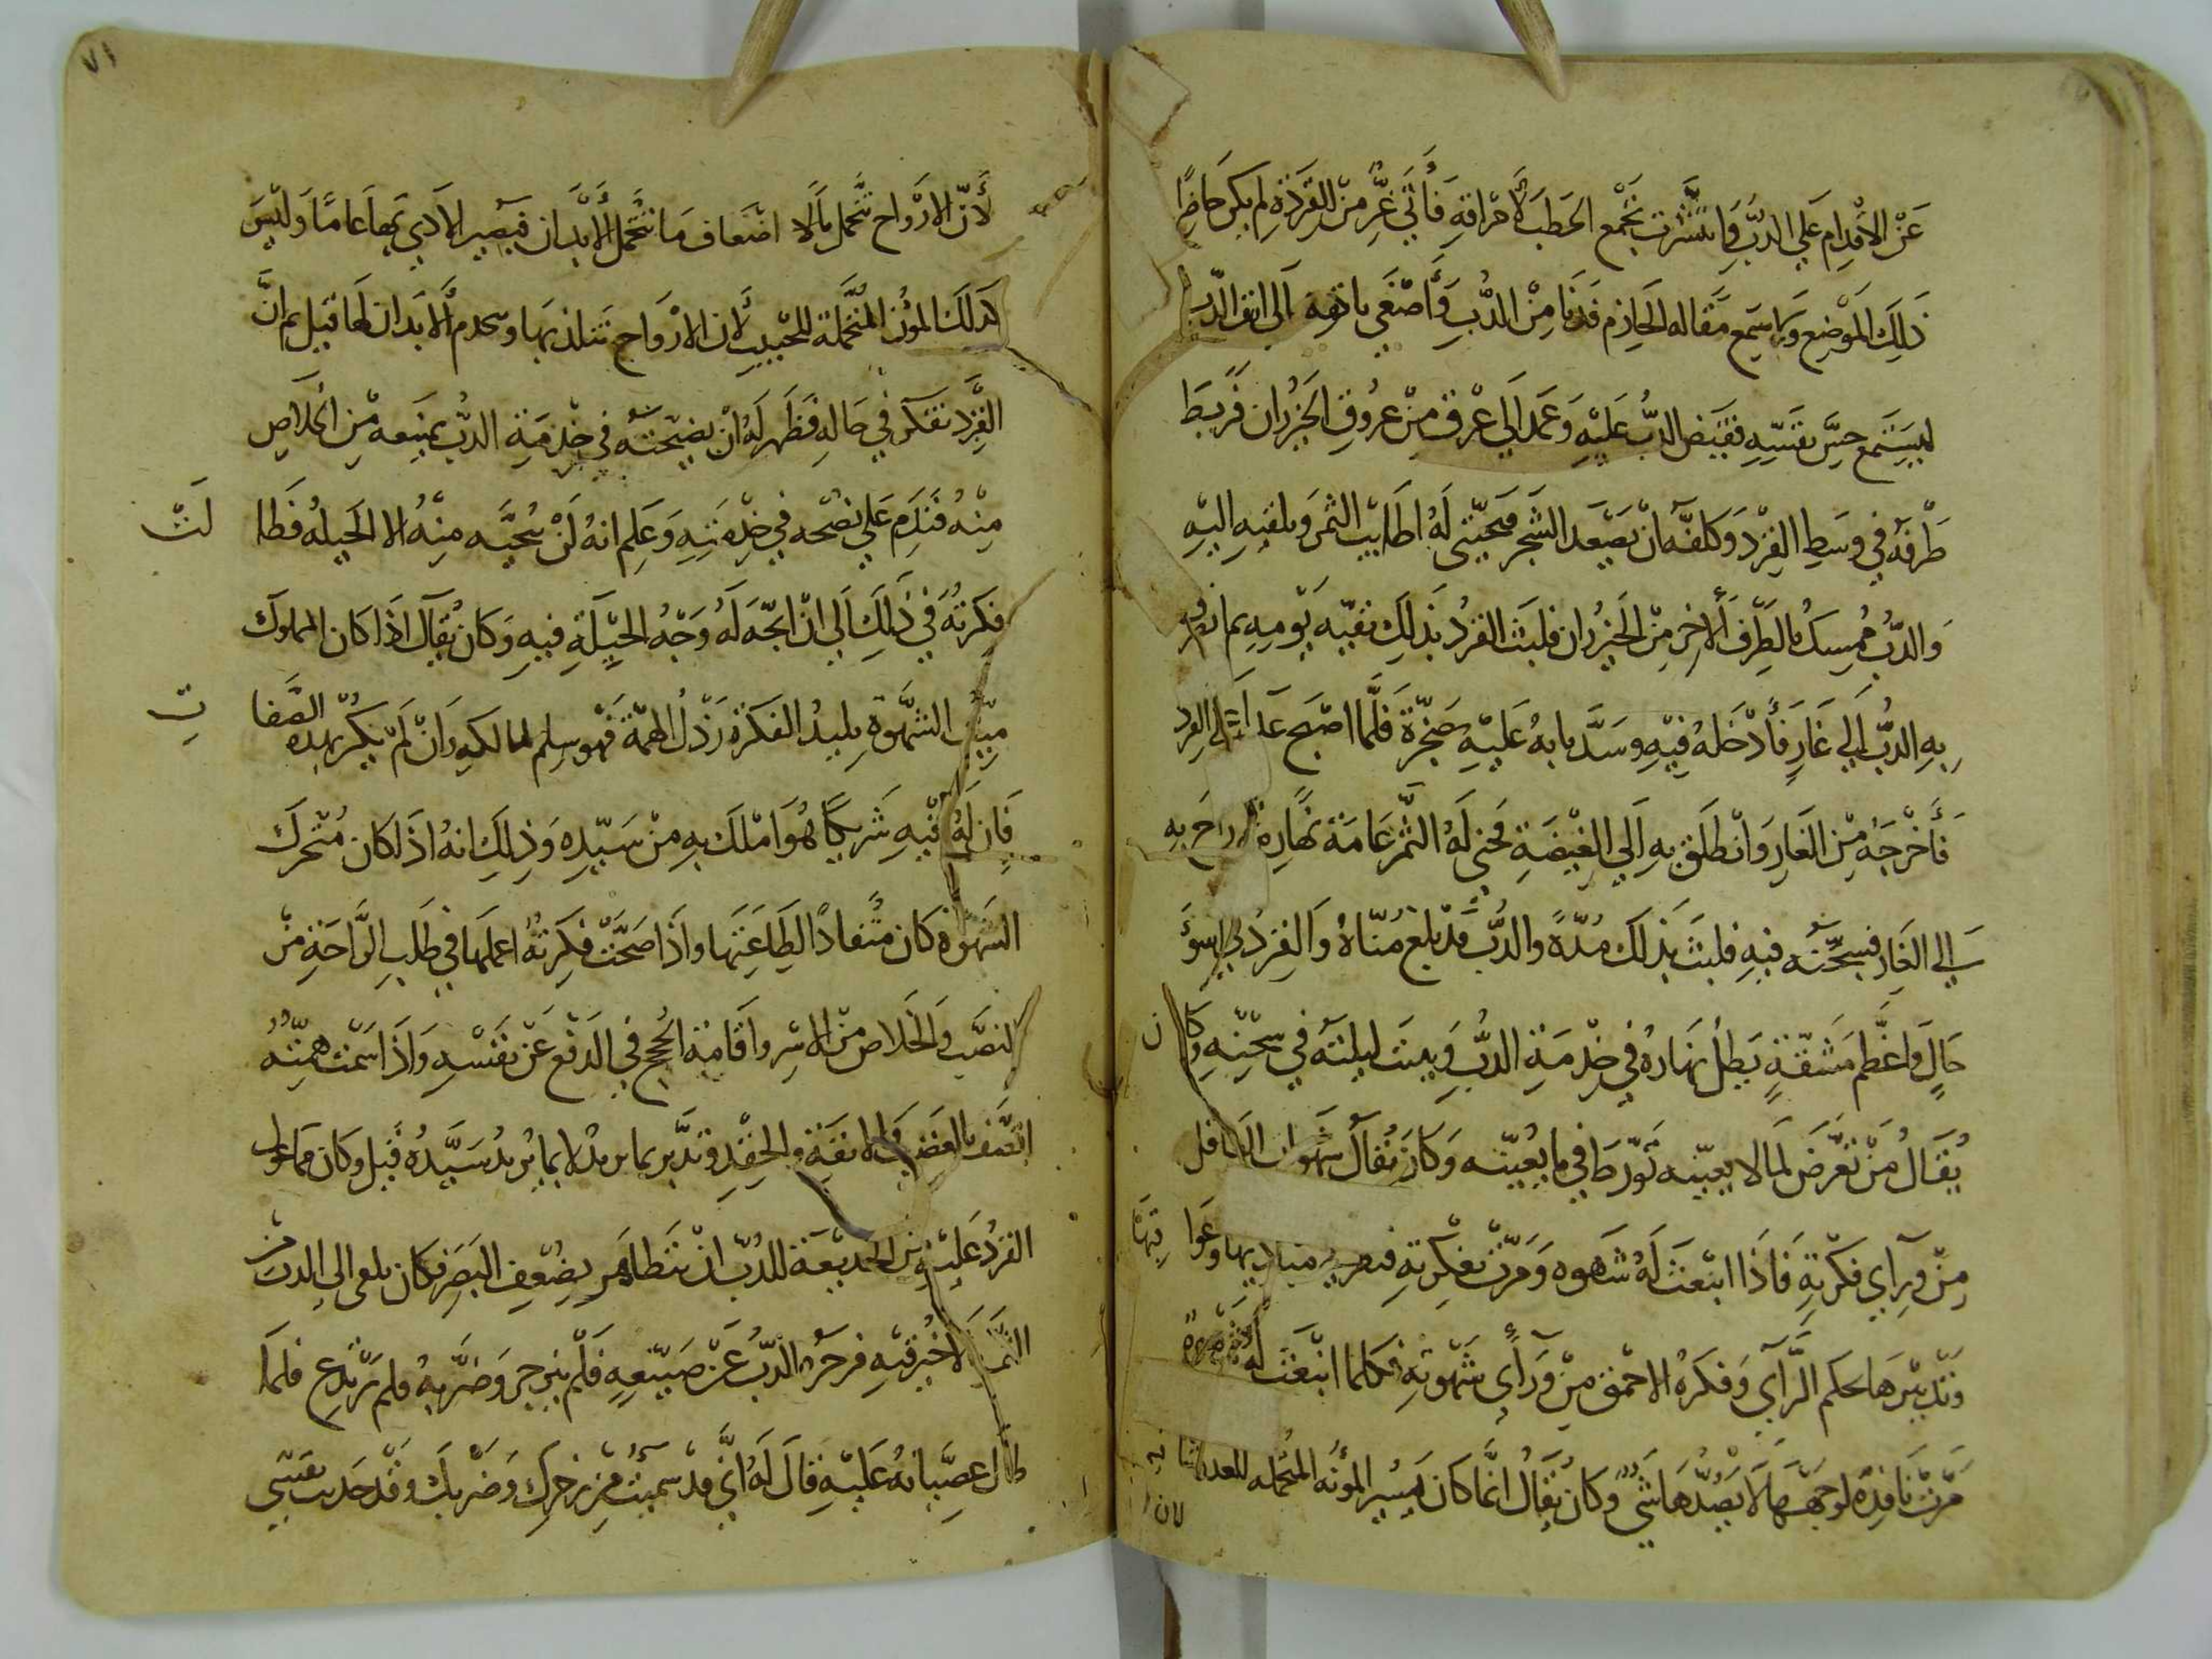 عَنْ الاقْدام عَلي الدُّبّ وانتشرت تَجْمَع الحَطَب لاحْراقهِ فَأتَي غِرٌّ مِنْ القِرَدَةِ لم يكن حَاضِرًا
ذَلِكَ المَوْضِع ولا سَمِع مقاله الحَازِم فَدَنَا مِنْ الدُّبِّ وَأَصْغَي باذنه الي انف الدُّب
ليَسْتَمع حِسَّ نفَسِهِ فقَبَض الدبُّ عَليْهِ وَعَمدَ الي عْرقٍ مِنْ عرُوقِ الخَيزُران فَرَبَط
طَرْفَهُ في وَسَطِ القِرْد وَكلفَّهُ انْ يَصْعَد الشَجَر فيَجْتَنى لَهُ اطَايِب الثَمَر وَيلقيهِ اليْهِ
وَالدُّبُّ مُمسِكٌ بالطَرْف الأخِر مِنْ الخَيزُران فلبَث القرْدُ بَذلِكَ بَقيّهَ يَوْمِهِ ثم انصرف
بِهِ الدبُّ اِلَي غَارٍ فَأدْخَلهُ فِيْهِ وسَدَّ بابهُ عَليْهِ بصَخْرَةٍ فَلمَّا اصْبَحَ غدا الي القرد
فَأَخْرَجَهُ مِنْ الغارِ وَانْطَلَق بِهِ اَلَي الغَيْضَةِ فجَنى لَهُ الثَّمَر عَامَة نَهَارِهِ ثم راحَ بِهِ
الي الغَار فسَجَنهُ فيهِ فلبثَ بَذلكَ مُدّةً والدُّبُّ قدْ بَلغَ مُنَاهُ وَالقِردُ في اسْوَءِ
حَالٍ وَاعْظَم مَشَقّةٍ يَظلُّ نهَارهُ فِي خِدْمَةِ الدبُّ وَيَبيتَ ليلتَهُ فِي سجْنِهِ وَكَان
يُقَالُ مَنْ تعَرَّضَ لمَا لا يعنيه تَوّرطَ في ما يُعْييه وَكانَ يُقَالُ شَهوات العَاقل
مِنْ وَرَاي فكرَتهِ فَاذَا انبَعَثَ لَهُ شَهوه وَمَرّتْ بفكْرتهِ مباديها وعَواقبهَا
وَتَدْبيْرهَا بحكم الرَّاي وَفكَرَة الاحْمَق مِنْ وَرَاي شَهْوتِهِ فكلما انْبَعَثَ لَهُ شَهْوة
مَرَّتْ نَافِذَة لوجهَهَا لَا يَصُدُّهَا شَيٌ وَكَانَ يُقَالُ انَّمَا كان يَسِير المؤنَه المتُحمله للعدو
لان
٧١
لَأنّ الارْوَاح تَتَحمّل بألا اضْعَاف مَا تتَحَمّل الأبْدَان فيَصِير الاَذي بِهَا عَامًا وَليسَ
كذلك المؤن المتَحَملة للحَبيبِ لان الارْوَاح تَتلذ بهَا وتخدم الأبدَان لهَا قيل ثم انّ
القِرْد تفَكر في حَالهِ فظَهر لهُ انْ نصيحَتَهُ في خِدْمَةِ الدبُّ يَمنَعه مِن الخَلاصِ
مِنْهُ فنَدِمَ عَلي نصْحه في خِدْمَتِهِ وَعَلِمَ انهُ لَنْ يُنَجيه مِنْهُ الا الحَيلهُ فَطالَتْ
فِكرَتُهَ في ذَلِكَ اَلَي انْ اتّجَهَ لَهُ وَجْهُ الحَيْلَةِ فيهِ وَكانَ يُقَالَ اذَا كان المملوك
مَيّت الشَّهْوَة بَليدُ الفكَرَة رَذْلُ الهمّةَ فَهوَ سِلم لمالكِهِ وَانْ لَمْ يَكُنْ بهذه الصَّفات
فَاِن لَهُ فيْهِ شَريكًا هُوَ امْلَك بِهِ مِنْ سَيّدِهِ وَذِلِكِ انهُ اذَا كان مُتْحَرك
الشَهْوَة كان مُنْقادًا لِطَاعَتِهَا واذَا صَحّتْ فكِرَتهُ اعملهَا في طَلبِ الرَّاحَةِ مِنْ
النصَبِ وَالخَلاص مِنْ الاسْر واقَامَة الحُجج في الدَفْع عَنْ نفَسْهِ وَاذَا سَمَتْ هِمّتُهُ
اتَصَّف بالغضَبِ والانفَةِ والحِقْدِ وتدَبّر بما يريدُ لا بما يُريدُ سَيّدُهُ قيل وكَان مما عوّل
القرْدُ عَليْهِ مِن الخديْعَة للدُبّ انْ يتَظاهَر بضُعْفِ البَصَر فكان يلقى الي الدب من
الثَمر مَا لَا خيْر فيْهِ فزجَرهُ الدبُّ عَنْ صَنيْعهِ فَلَمْ يَنزجر وَضَرَبهُ فلم يَرْتَدِع فلمَا
طال عِصْيانهُ عَليْهِ قالَ لَهُ انَّي قدْ سَمِيْتُ مِنْ زجرك وَضَرْبك وقَدْ حَدثت نفَسي